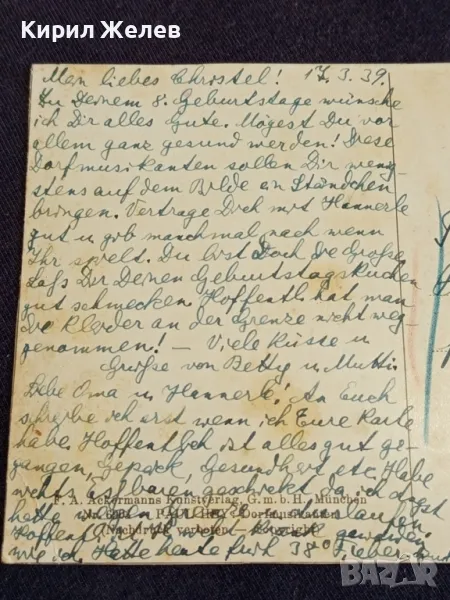 Кирил Желев
Mein liebes Christel! 17.3.39.
Zu Deinem 8. Geburtstage wünsche
ich Dir alles Gute. Mögest Du vor
allem ganz gesund werden! Diese
Dorfmusikanten sollen Dir wenig
stens auf dem Bilde ein Ständchen
bringen. Vertrage Dich mit Hannerle
gut u. gib manchmal nach wenn
Ihr spielt. Du bist Doch die Große.
Laß Dir Deinen Geburtstagskuchen
gut schmecken. Hoffentl. hat man
Die Kleider an der Grenze nicht weg-
genommen! – Viele Küsse u.
Grüße von Betty u. Mutti.
Liebe Oma u. Hannerle! An Euch
schreibe ich erst wenn ich Eure Karte
habe. Hoffentlich ist alles gut ge-
gangen, Gepäck, Gesundheit etc. Habe
geschickt, da ich Angst
F. A. Ackermanns Kunstverlag, G. m. b. H., München
hatte
PAUL HEY Dorfmusikanten
Nachdruck verboten — Copyright
Hoffentl.
wie ich. Hatte heute früh 38° Fieber
BAZAR